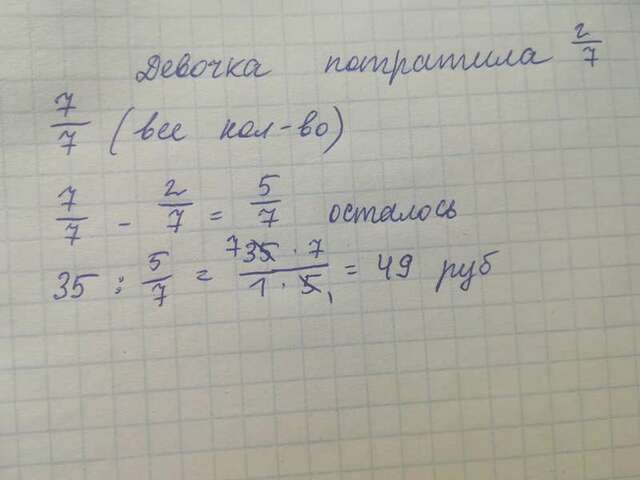 Девочка потратила 2/7
7/7 (все кол-во)
7/7 - 2/7 = 5/7 осталось
35 : 5/7 = 7 35 · 7 / 1 · 5 1 = 49 руб